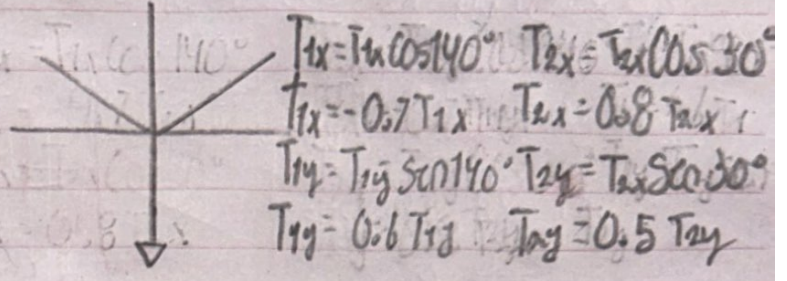 T1x = T1x Cos 140° T2x = T2x Cos 30°
T1x = -0.7 T1x T2x = 0.8 T2x
T1y = T1y Sen 140° T2y = T2x Sen 30°
T1y = 0.6 T1y T2y = 0.5 T2y